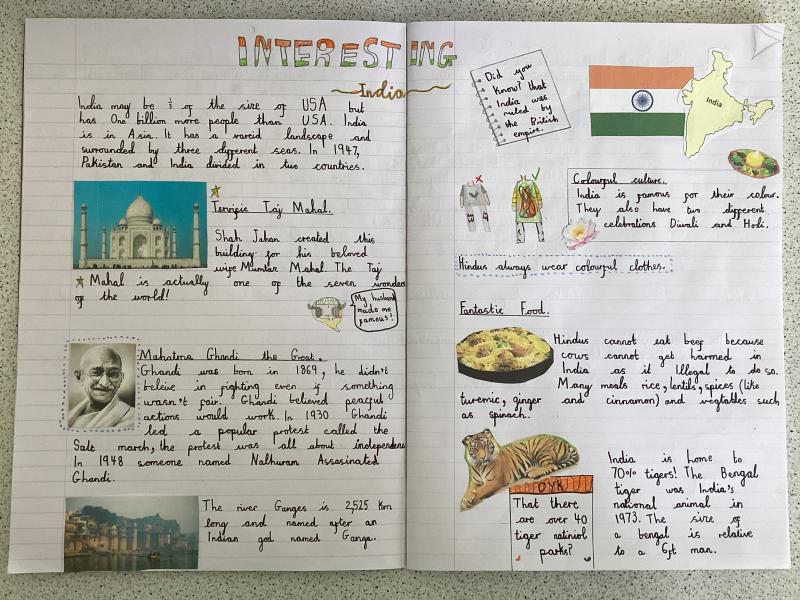 INTERESTING
India
India may be 1/3 of the size of USA but
has One billion more people than USA. India
is in Asia. It has a varcid landscape and
surrounded by three different seas. In 1947,
Pakistan and India divided in two countries.
Terrific Taj Mahal.
Shah Jahan created this
building for his beloved
wife Mumtaz Mahal. The Taj
Mahal is actually one of the seven wonders
of the world!
My husband
made me
famous!
Mahatma Ghandi the Great.
Ghandi was born in 1869, he didn't
beleive in fighting even if something
wasn't fair. Ghandi believed peacful
actions would work. In 1930 Ghandi
led a popular protest called the
Salt march, the protest was all about independence
In 1948 someone named Nathuram Assasinated
Ghandi.
The river Ganges is 2,525 Km
long and named after an
Indian god named Ganga.
Did you
Know? that
India was
ruled by
the British
empire.
India
Colourful culture.
India is famous for their colour.
They also have two different
celebrations Diwali and Holi.
Hindus always wear colourful clothes.
Fantastic Food.
Hindus cannot eat beef because
cows cannot get harmed in
India as it Illegal to do so.
Many meals rice, lentils, spices (like
turemic, ginger and cinnamon) and vegtables such
as spinach.
DYK
That there
are over 40
tiger natiniol
parks?
India is home to
70% tigers! The Bengal
tiger was India's
national animal in
1973. The size of
a bengal is relative
to a 6ft man.